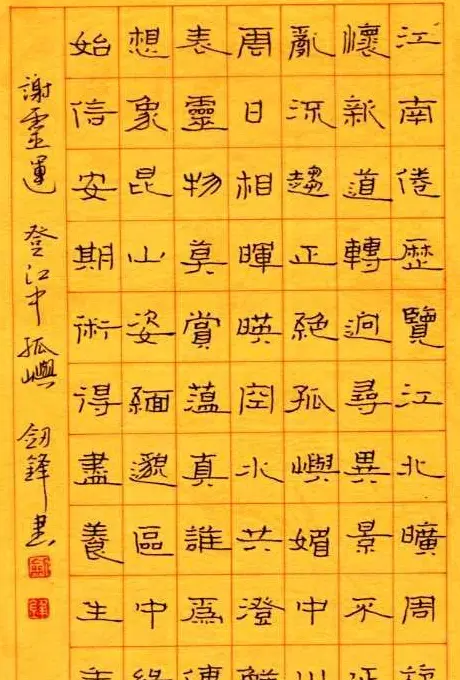 江南倦歷覽江北曠周旋
懷新道轉迥尋異景不延
亂流趨正絕孤嶼媚中川
周日相暉暎空水共澄鮮
表靈物莫賞蕰真誰爲傳
想象昆山姿緬邈區中緣
始信安期術得盡養生年
謝靈運 登江中孤嶼 劒鋒書